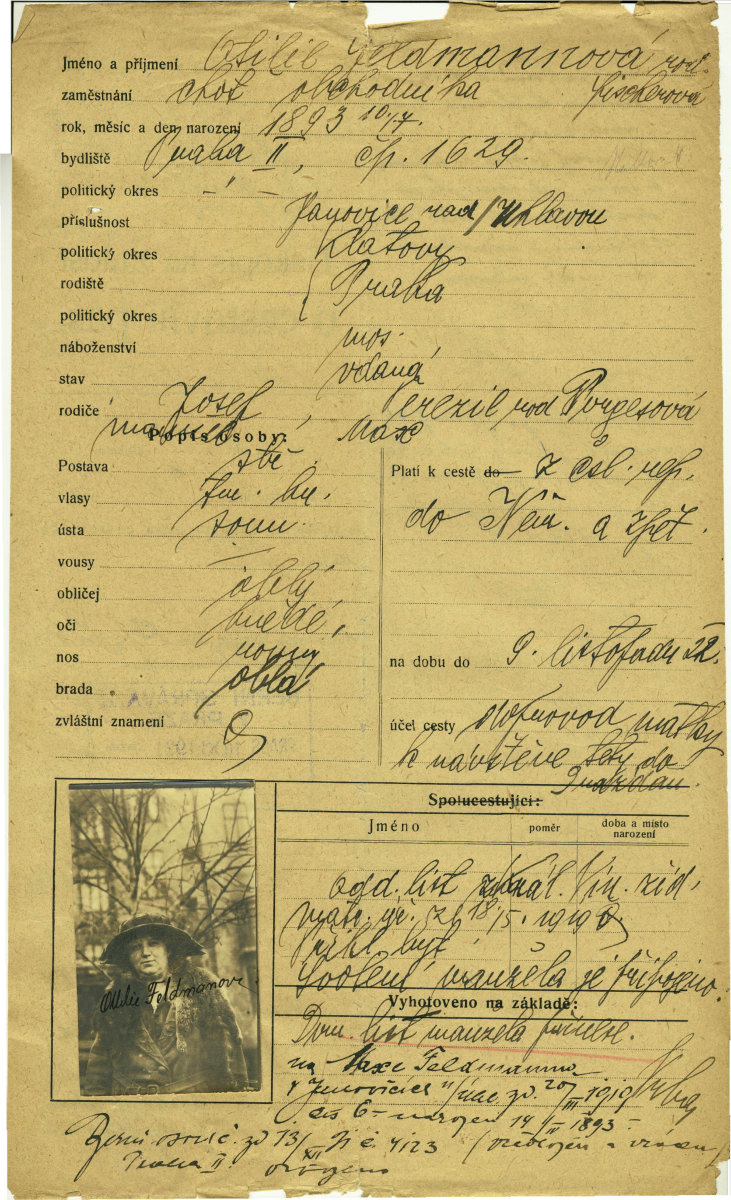 Jméno a příjmení Otilie Feldmannová rod.
zaměstnání choť obchodníka Fischerová
rok, měsíc a den narození 1893 10./7.
bydliště Praha II, čp. 1629.
politický okres
příslušnost Janovice nad/Uhlavou
politický okres Klatovy
rodiště Praha
politický okres
náboženství mos.
stav vdaná
rodiče Josef, Terezie rod Porgesová
manžel Max
Popis osoby:
Postava stř.
vlasy tm. hn.
ústa soum.
vousy —
obličej oblý
oči hnědé,
nos rovný
brada oblá
zvláštní znamení 0
Platí k cestě do z čsl. rep.
do Něm. a zpět.
na dobu do 9. listopadu 22.
účel cesty doprovod matky
k návštěvě tety do
Drážďan.
Spolucestující:
Jméno poměr doba a místo
narození
Odd. list žid.
matr. úř. 18/5. 1919
Svolení manžela je připojeno.
Vyhotoveno na základě:
Dom. list manžela
na Maxe Feldmanna
v Janovicích 20/III 1919
čís 6 – narozen 14/II 1893 –
č. 4123
Praha II
Otilie Feldmanová